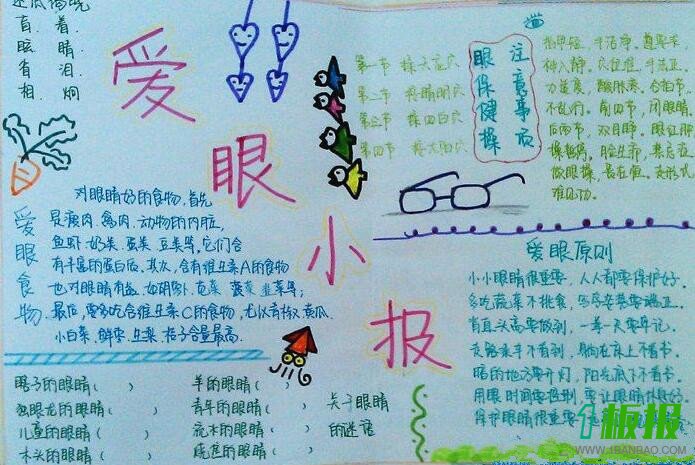 爱眼小报
有 着
眩 晴
有 泪
相 烔
第一节 揉天应穴
第二节 挤睛明穴
第三节 揉四白穴
第四节 揉太阳穴
眼保健操
注意事项
指甲短,手洁净。遵要求
神入静。穴位准,手法正
力适度,酸胀来。合拍节,
不乱作。前四节,闭眼睛
做眼操,贵在恒。走形式
难见功。
爱眼食物
对眼睛好的食物,首先
是瘦肉、禽肉、动物的内脏,
鱼虾、奶类、蛋类、豆类等,它们含
有丰富的蛋白质。其次,含有维生素A的食物
也对眼睛有益,如胡萝卜、苋菜、菠菜、韭菜等;
最后,要多吃含维生素C的食物,尤以青椒、黄瓜、
小白菜、鲜枣、生梨、桔子含量最高。
爱眼原则
小小眼睛很重要,人人都要保护好。
多吃蔬菜不挑食,写字姿势要端正。
有直头高要做到,一尊一寸要牢记。
走路乘车不看到,躺在床上不看书。
暗的地方要开灯,阳光底下不看书。
用眼时间要控制,要让眼睛休息好。
保护眼睛很重要
瞎子的眼睛( )
独眼龙的眼睛( )
儿童的眼睛( )
木头的眼睛( )
羊的眼睛( )
青年的眼睛( )
流水的眼睛( )
疲惫的眼睛( )
关于眼睛
的谜语
板报
WWW.IBANBAO.COM